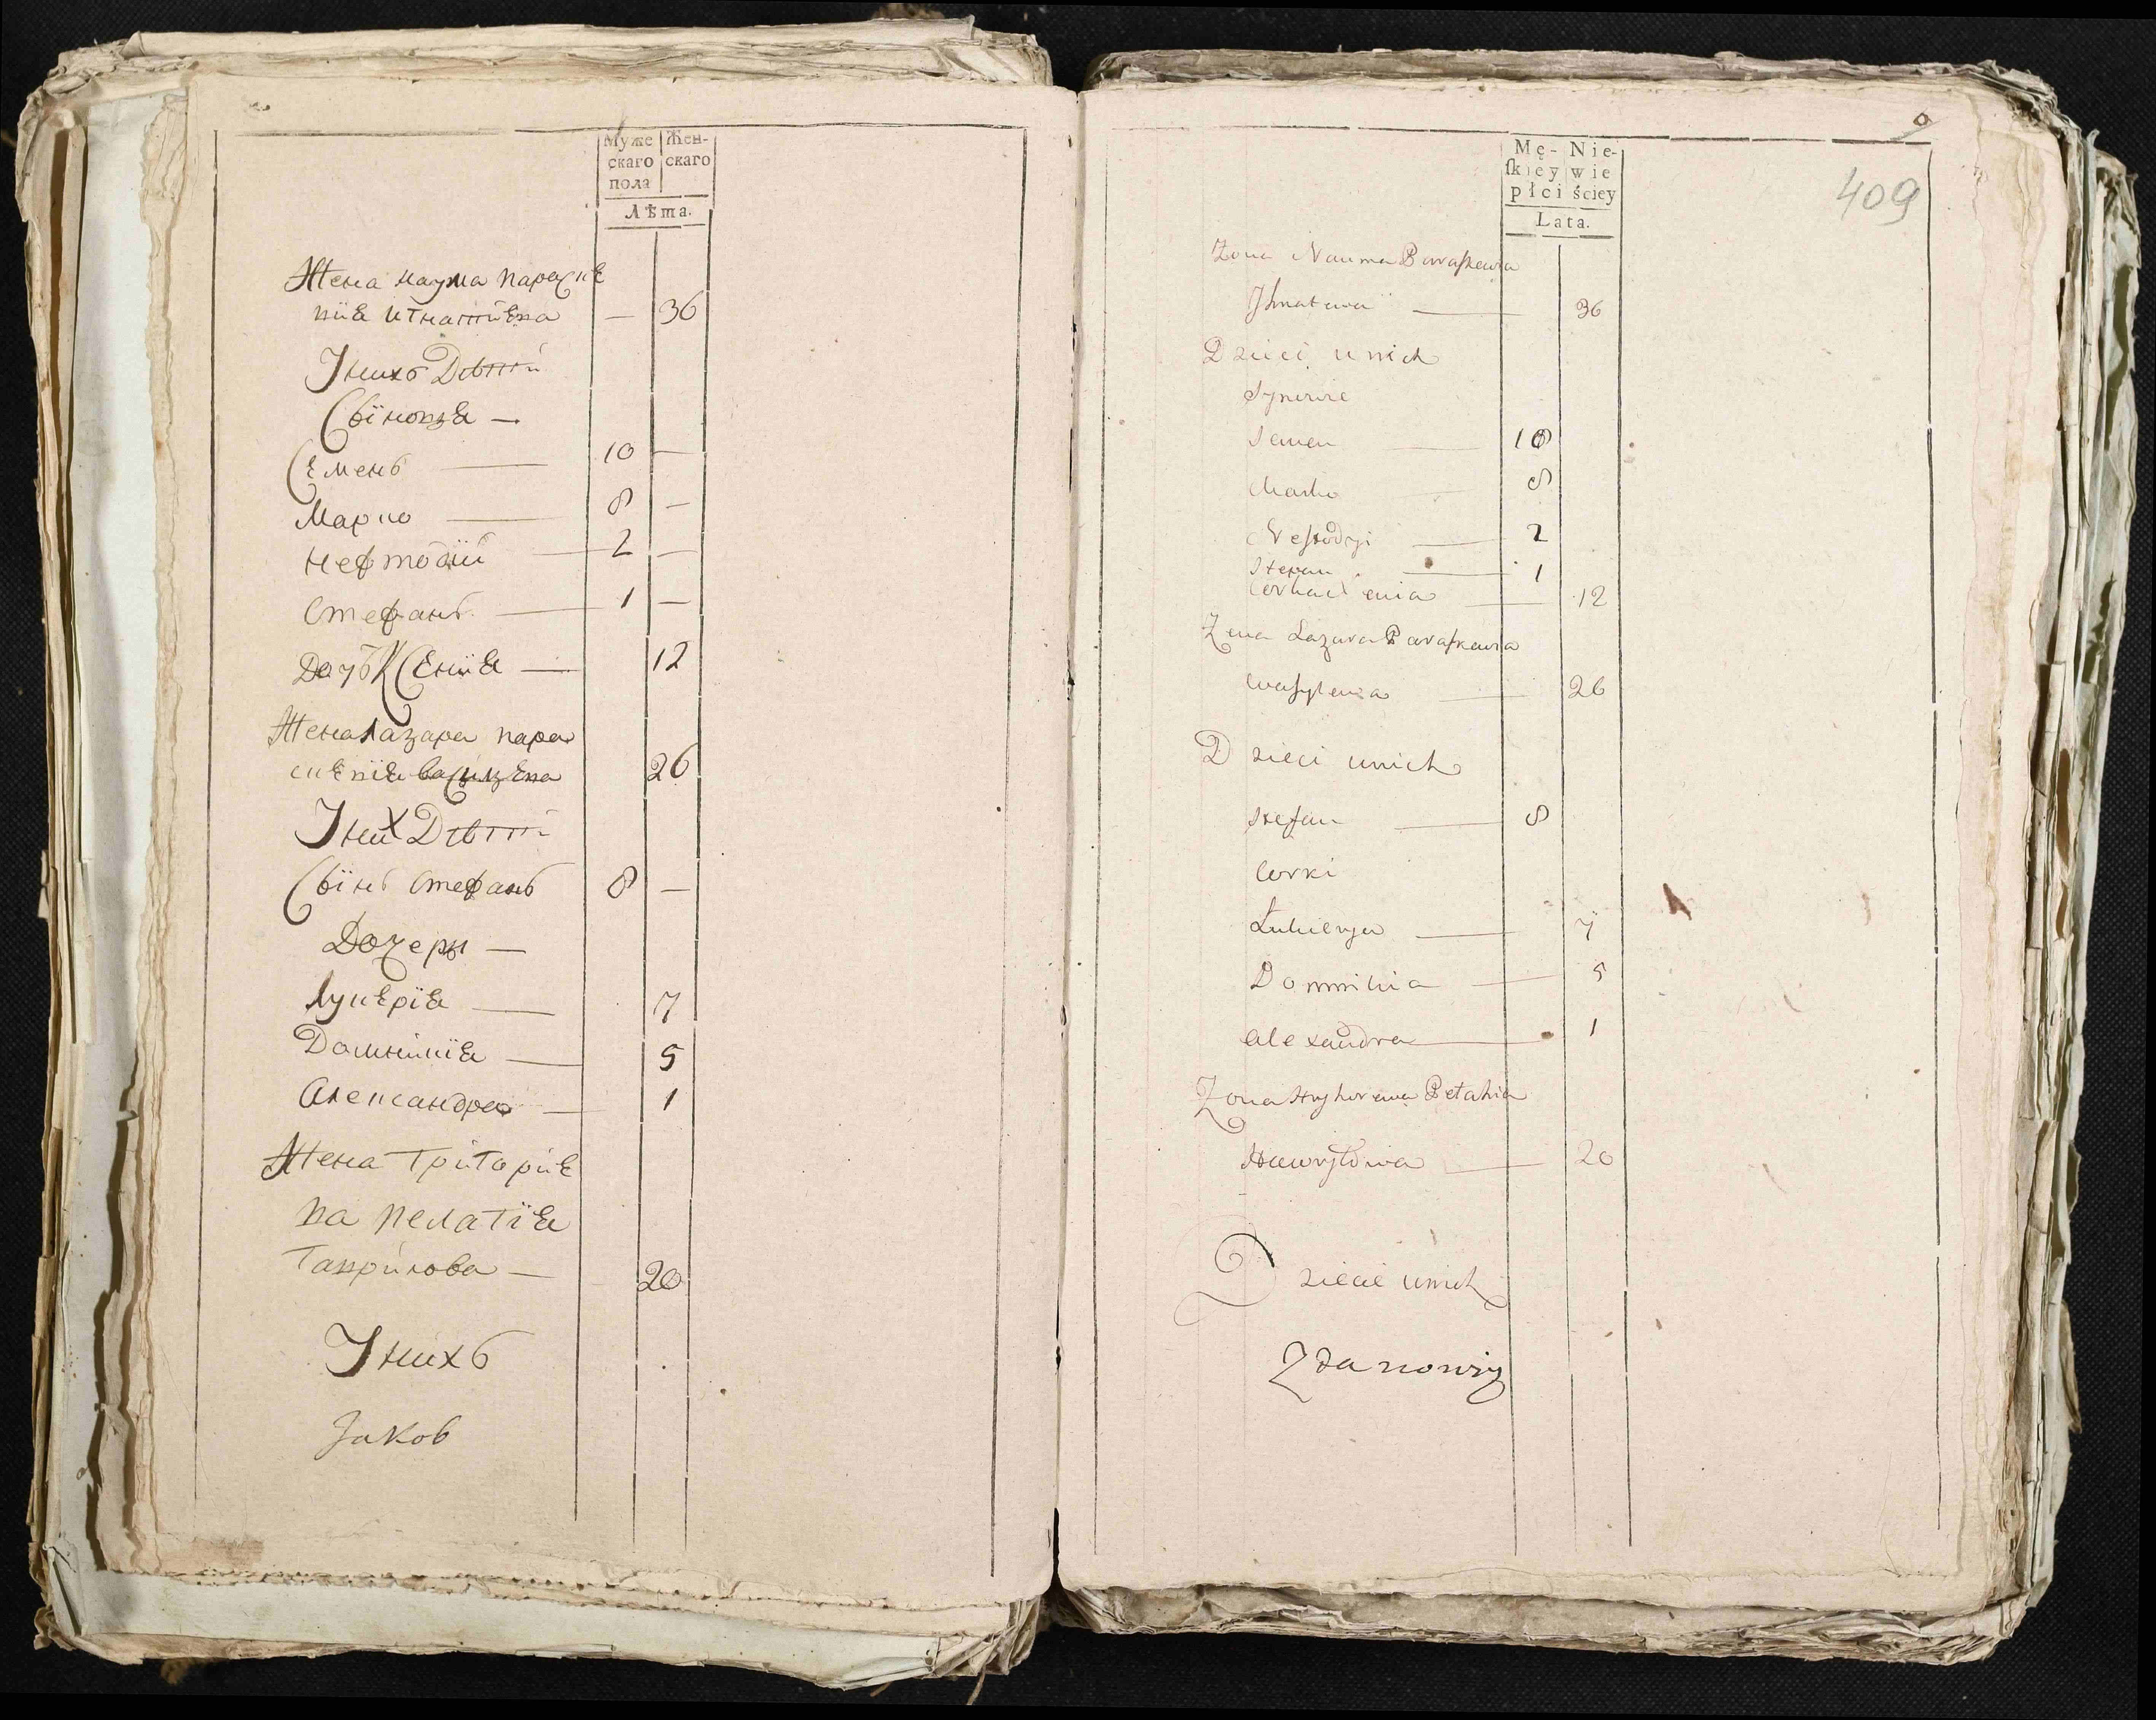 Муже
скаго
пола
Жен-
скаго
Лѣта.
Жена наума параске
вия игнатиева — 36
У нихъ Дѣти
Сыновя —
Семенъ — 10 —
Марко — 8 —
нефтодий — 2 —
Стефанъ — 1 —
Дочь Ксения — 12
Жена лазара пара
скевия василева 26
У них Дѣти
Сынъ Стефанъ 8 —
Дочери —
лукерия — 7
Домникия — 5
Александра — 1
Жена григорие
ва пелагия
гаврилова — 20
У нихъ
Jаковъ
409
Mę-
ſkiey
płci
Nie-
wie
ściey
Lata.
Zona Nauma Paraſkewia
Jhnatewa — 36
Dzieci u nich
Synowie
Semen — 10
Marko — 8
Nestodyi — 2
Stepan — 1
Corka Xenia — 12
Zona Lazara Paraſkewia
Wasylewa — 26
Dzieci u nich
Stefan — 8
Corki
Łukierya — 7
Domnikia — 5
Alexandra — 1
Zona Hryhorewa Petahia
Hawryłowa — 20
Dzieci u nich
Zdanowicz